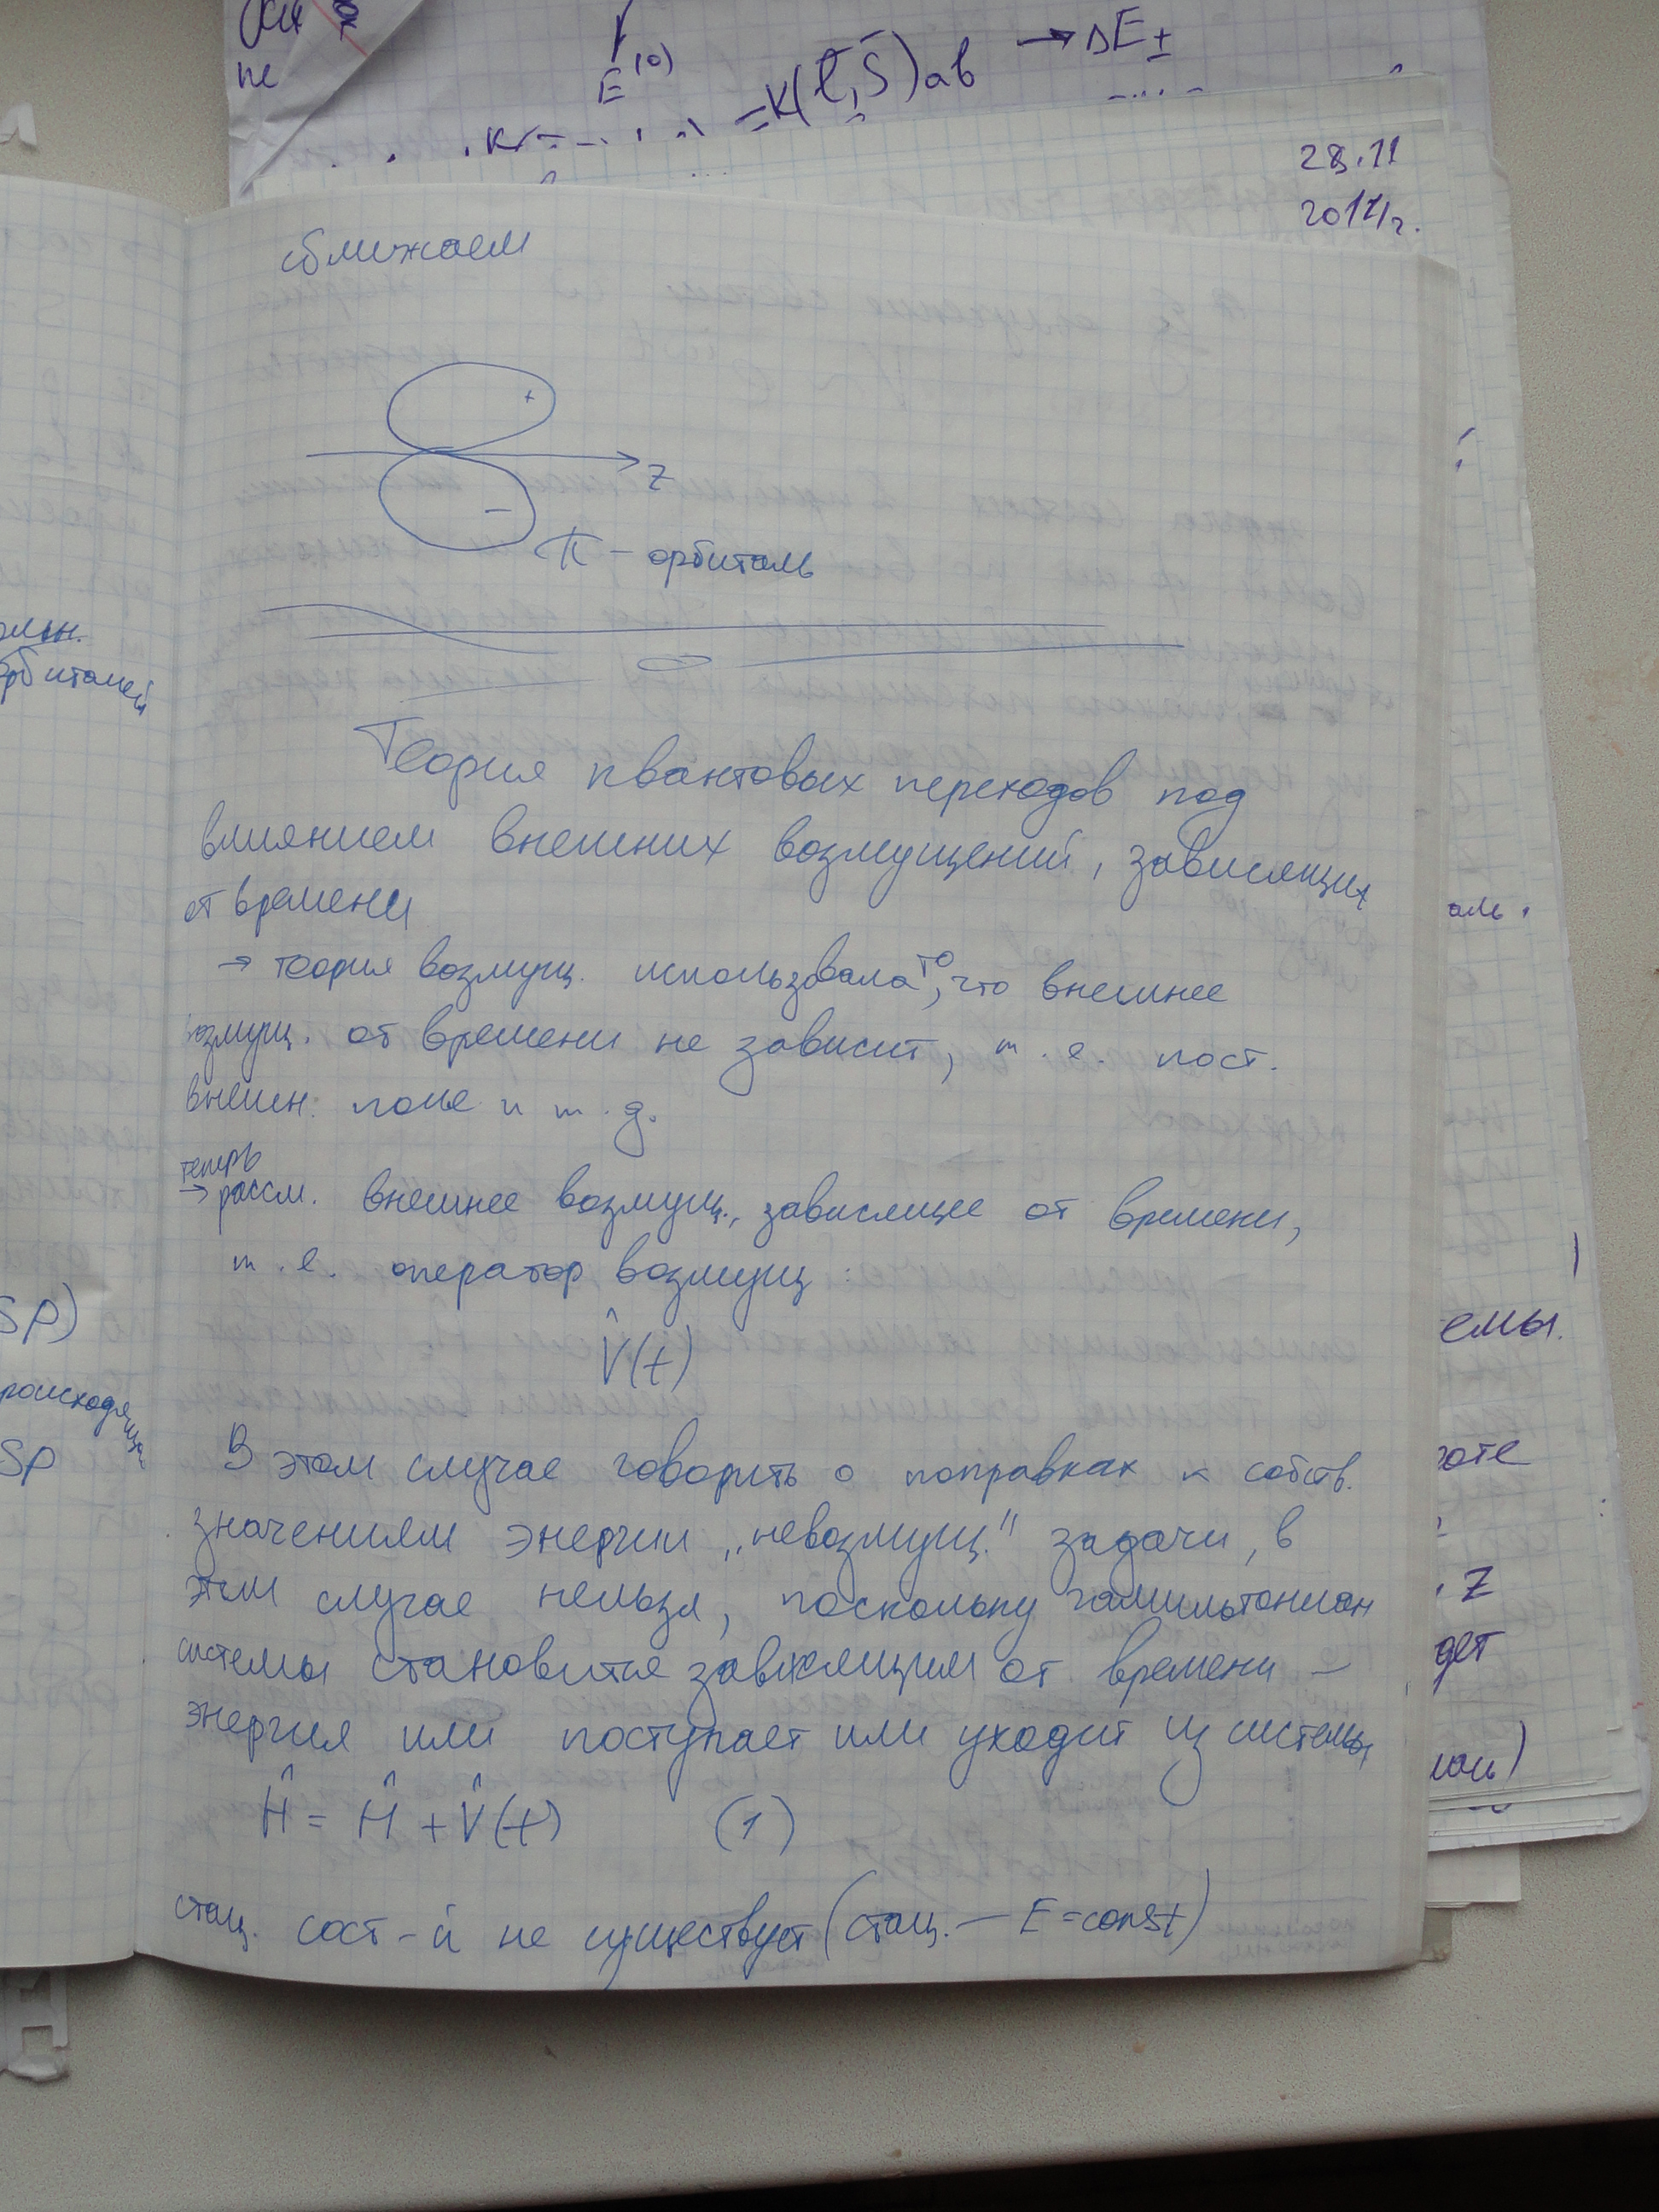 E⁽⁰⁾
=K(l,S)ab → ΔE±
28.11
сближаем
+
Z
−
π – орбиталь
Теория квантовых переходов под
влиянием внешних возмущений, зависящих
от времени
→ теория возмущ. использовала то, что внешнее
возмущ. от времени не зависит, т.е. пост.
внешн. поле и т.д.
теперь
→ рассм. внешнее возмущ., зависящее от времени,
т.е. оператор возмущ:
V̂(t)
В этом случае говорить о поправках к собств.
значениям энергии „невозмущ." задачи, в
этом случае нельзя, поскольку гамильтониан
системы становится зависящим от времени –
энергия или поступает или уходит из системы
Ĥ = Ĥ + V̂(t) (1)
стац. сост-й не существует (стац. – E=const)
орбиталей
SP)
SP
емы.
Z
дет